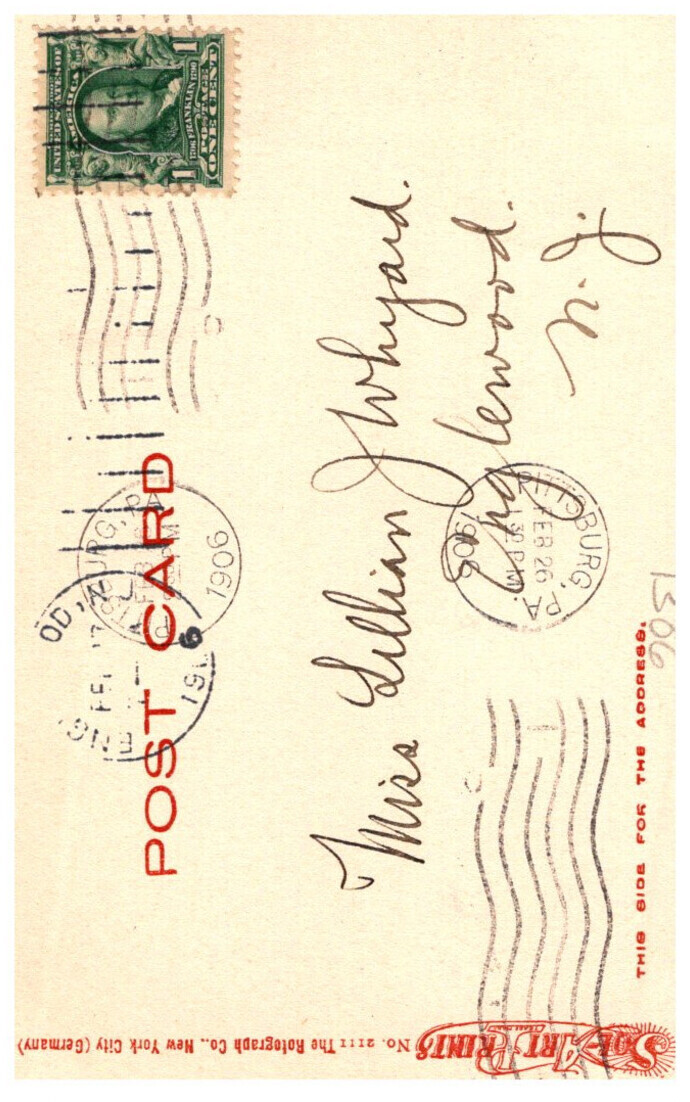 POST CARD
UNITED STATES OF
AMERICA
1706 FRANKLIN 1790
POSTAGE
1 ONE CENT 1
PITTSBURG, PA.
FEB 26
1 30 P.M.
1906
PA
1906
1906
Miss Lillian J Whyard.
Englewood.
N. J.
1906
THIS SIDE FOR THE ADDRESS.
SOL-ART PRINTS
No. 2111 The Rotograph Co., New York City (Germany)